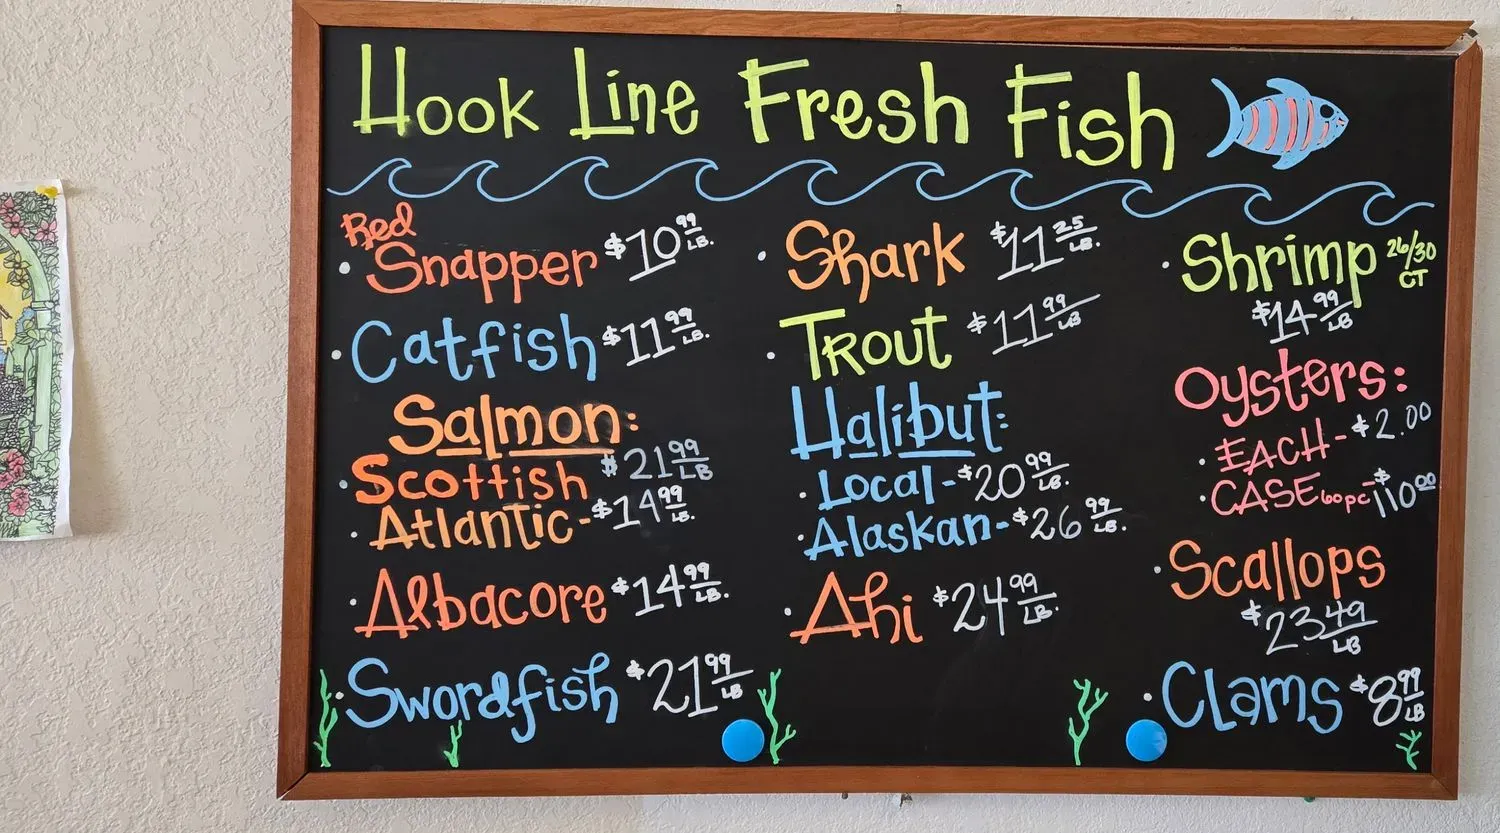 Hook Line Fresh Fish
Red
· Snapper $10 99/LB.
· Catfish $11 99/LB.
Salmon:
· Scottish $21 99/LB
· Atlantic - $14 99/LB.
· Albacore $14 99/LB.
· Swordfish $21 99/LB
· Shark $11 25/LB.
· Trout $11 99/LB
Halibut:
· Local - $20 99/LB.
· Alaskan - $26 99/LB.
· Ahi $24 99/LB.
· Shrimp 26/30 CT
$14 99/LB
Oysters:
· EACH - $2.00
· CASE 60 pc - $110 00
· Scallops
$23 49/LB
· Clams $8 99/LB